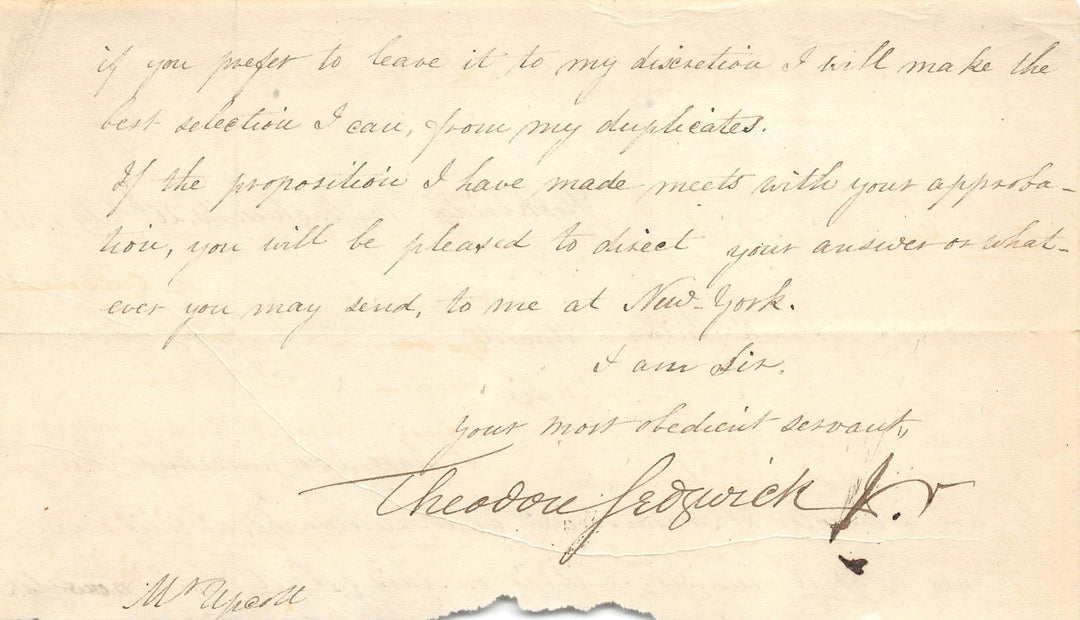 if you prefer to leave it to my discretion I will make the
best selection I can, from my duplicates.
If the proposition I have made meets with your approba-
tion, you will be pleased to direct your answer or what-
ever you may send, to me at New-York.
I am Sir.
your most obedient servant,
Theodore Sedgwick Jr.
Mr Upcott